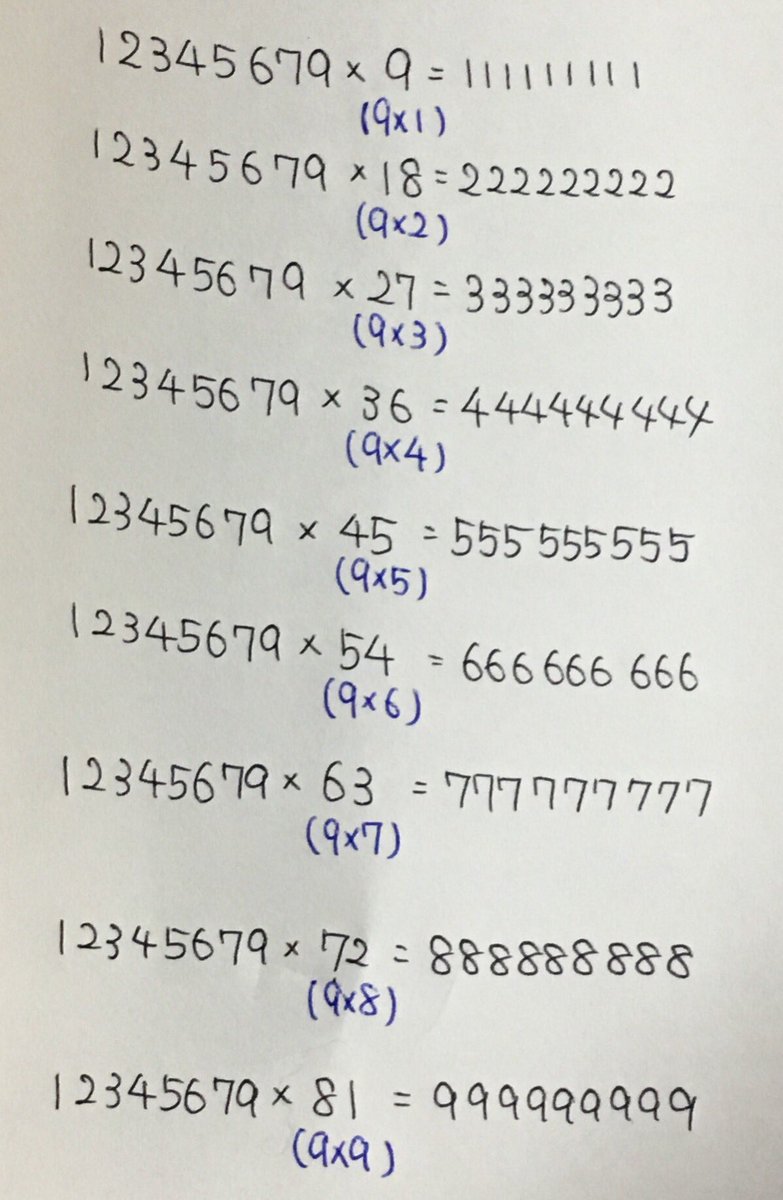 12345679 × 9 = 111111111
(9×1)
12345679 × 18 = 222222222
(9×2)
12345679 × 27 = 333333333
(9×3)
12345679 × 36 = 444444444
(9×4)
12345679 × 45 = 555555555
(9×5)
12345679 × 54 = 666 666 666
(9×6)
12345679 × 63 = 777777777
(9×7)
12345679 × 72 = 888888888
(9×8)
12345679 × 81 = 999999999
(9×9)